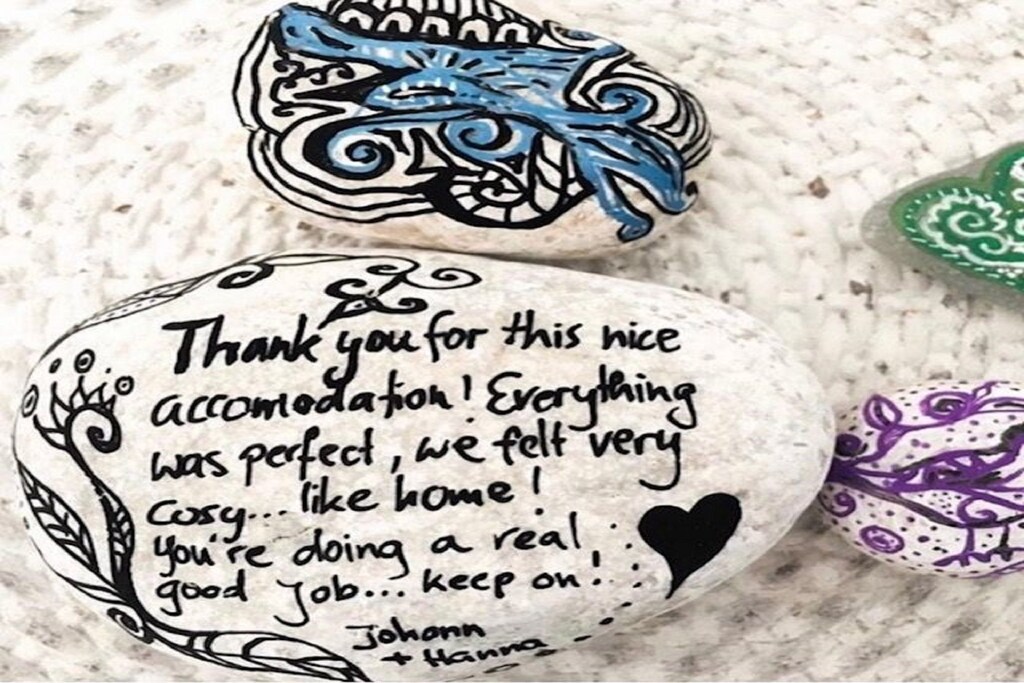 Thank you for this nice
accomodation! Everything
was perfect, we felt very
cosy... like home!
You're doing a real,
good job... keep on!
Johann
+ Hanna